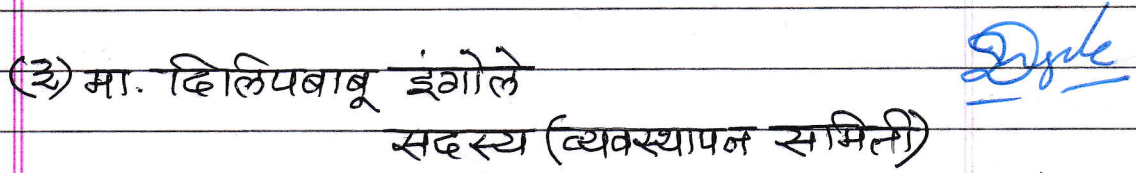 (२) मा. दिलिपबाबू इंगोले
सदस्य (व्यवस्थापन समिती)